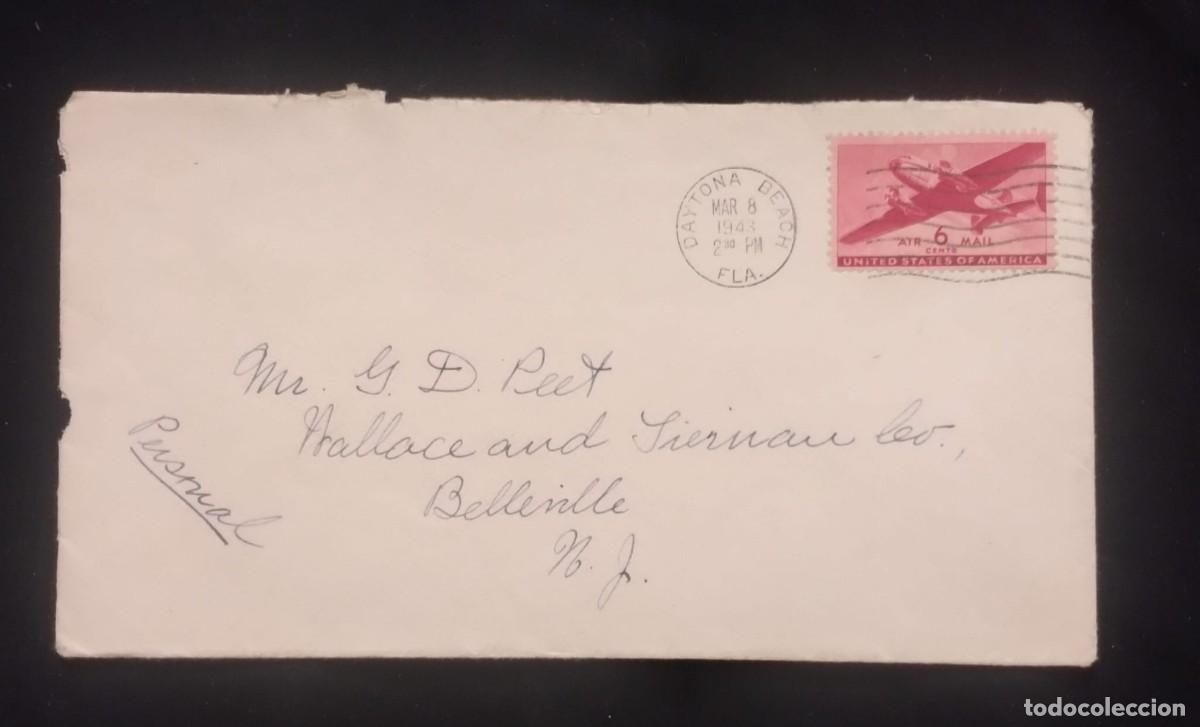 DAYTONA BEACH
MAR 8
1943
2 30 PM
FLA.
AIR 6 MAIL
CENTS
UNITED STATES OF AMERICA
Mr. G. D. Peet
Wallace and Tiernan Co.,
Belleville
N. J.
Personal
todocoleccion